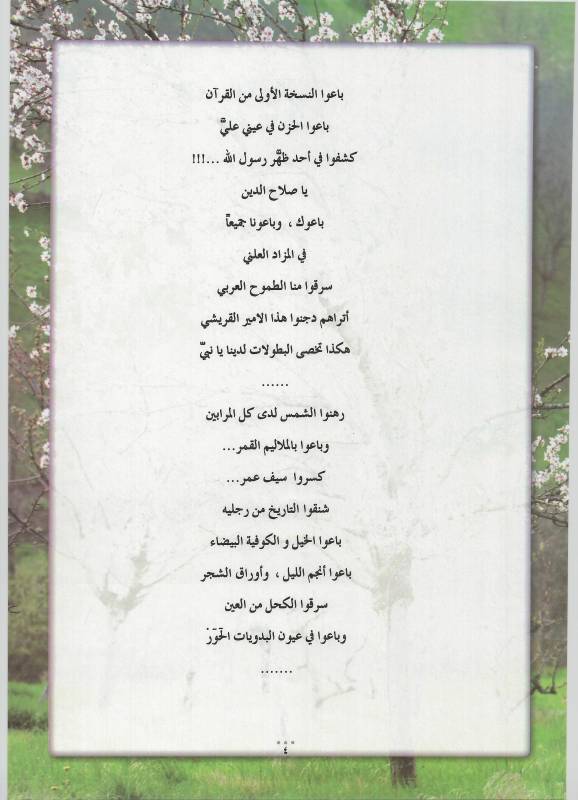 باعوا النسخة الأولى من القرآن
باعوا الحزن في عيني عليَّ
كشفوا في أحد ظهَّر رسول الله ...!!!
يا صلاح الدين
باعوك ، وباعونا جميعاً
في المزاد العلني
سرقوا منا الطموح العربي
أتراهم دجنوا هذا الامير القريشي
هكذا تخصى البطولات لدينا يا نبيّ
......
رهنوا الشمس لدى كل المرابين
وباعوا بالملاليم القمر...
كسروا سيف عمر...
شنقوا التاريخ من رجليه
باعوا الخيل و الكوفية البيضاء
باعوا أنجم الليل ، وأوراق الشجر
سرقوا الكحل من العين
وباعوا في عيون البدويات الحَوَرْ
.......
٤